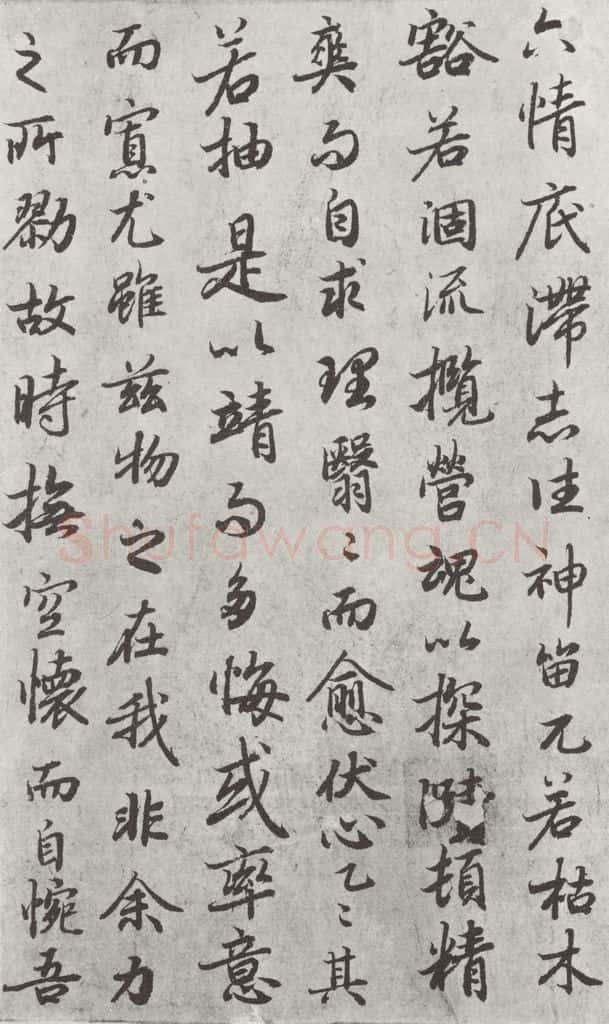 六情底滯志往神留兀若枯木
豁若涸流攬營魂以探賾頓精
爽而自求理翳〻而愈伏心乙〻其
若抽是以靖而多悔或率意
而寡尤雖茲物之在我非余力
之所勠故時撫空懷而自惋吾
Shufawang.CN